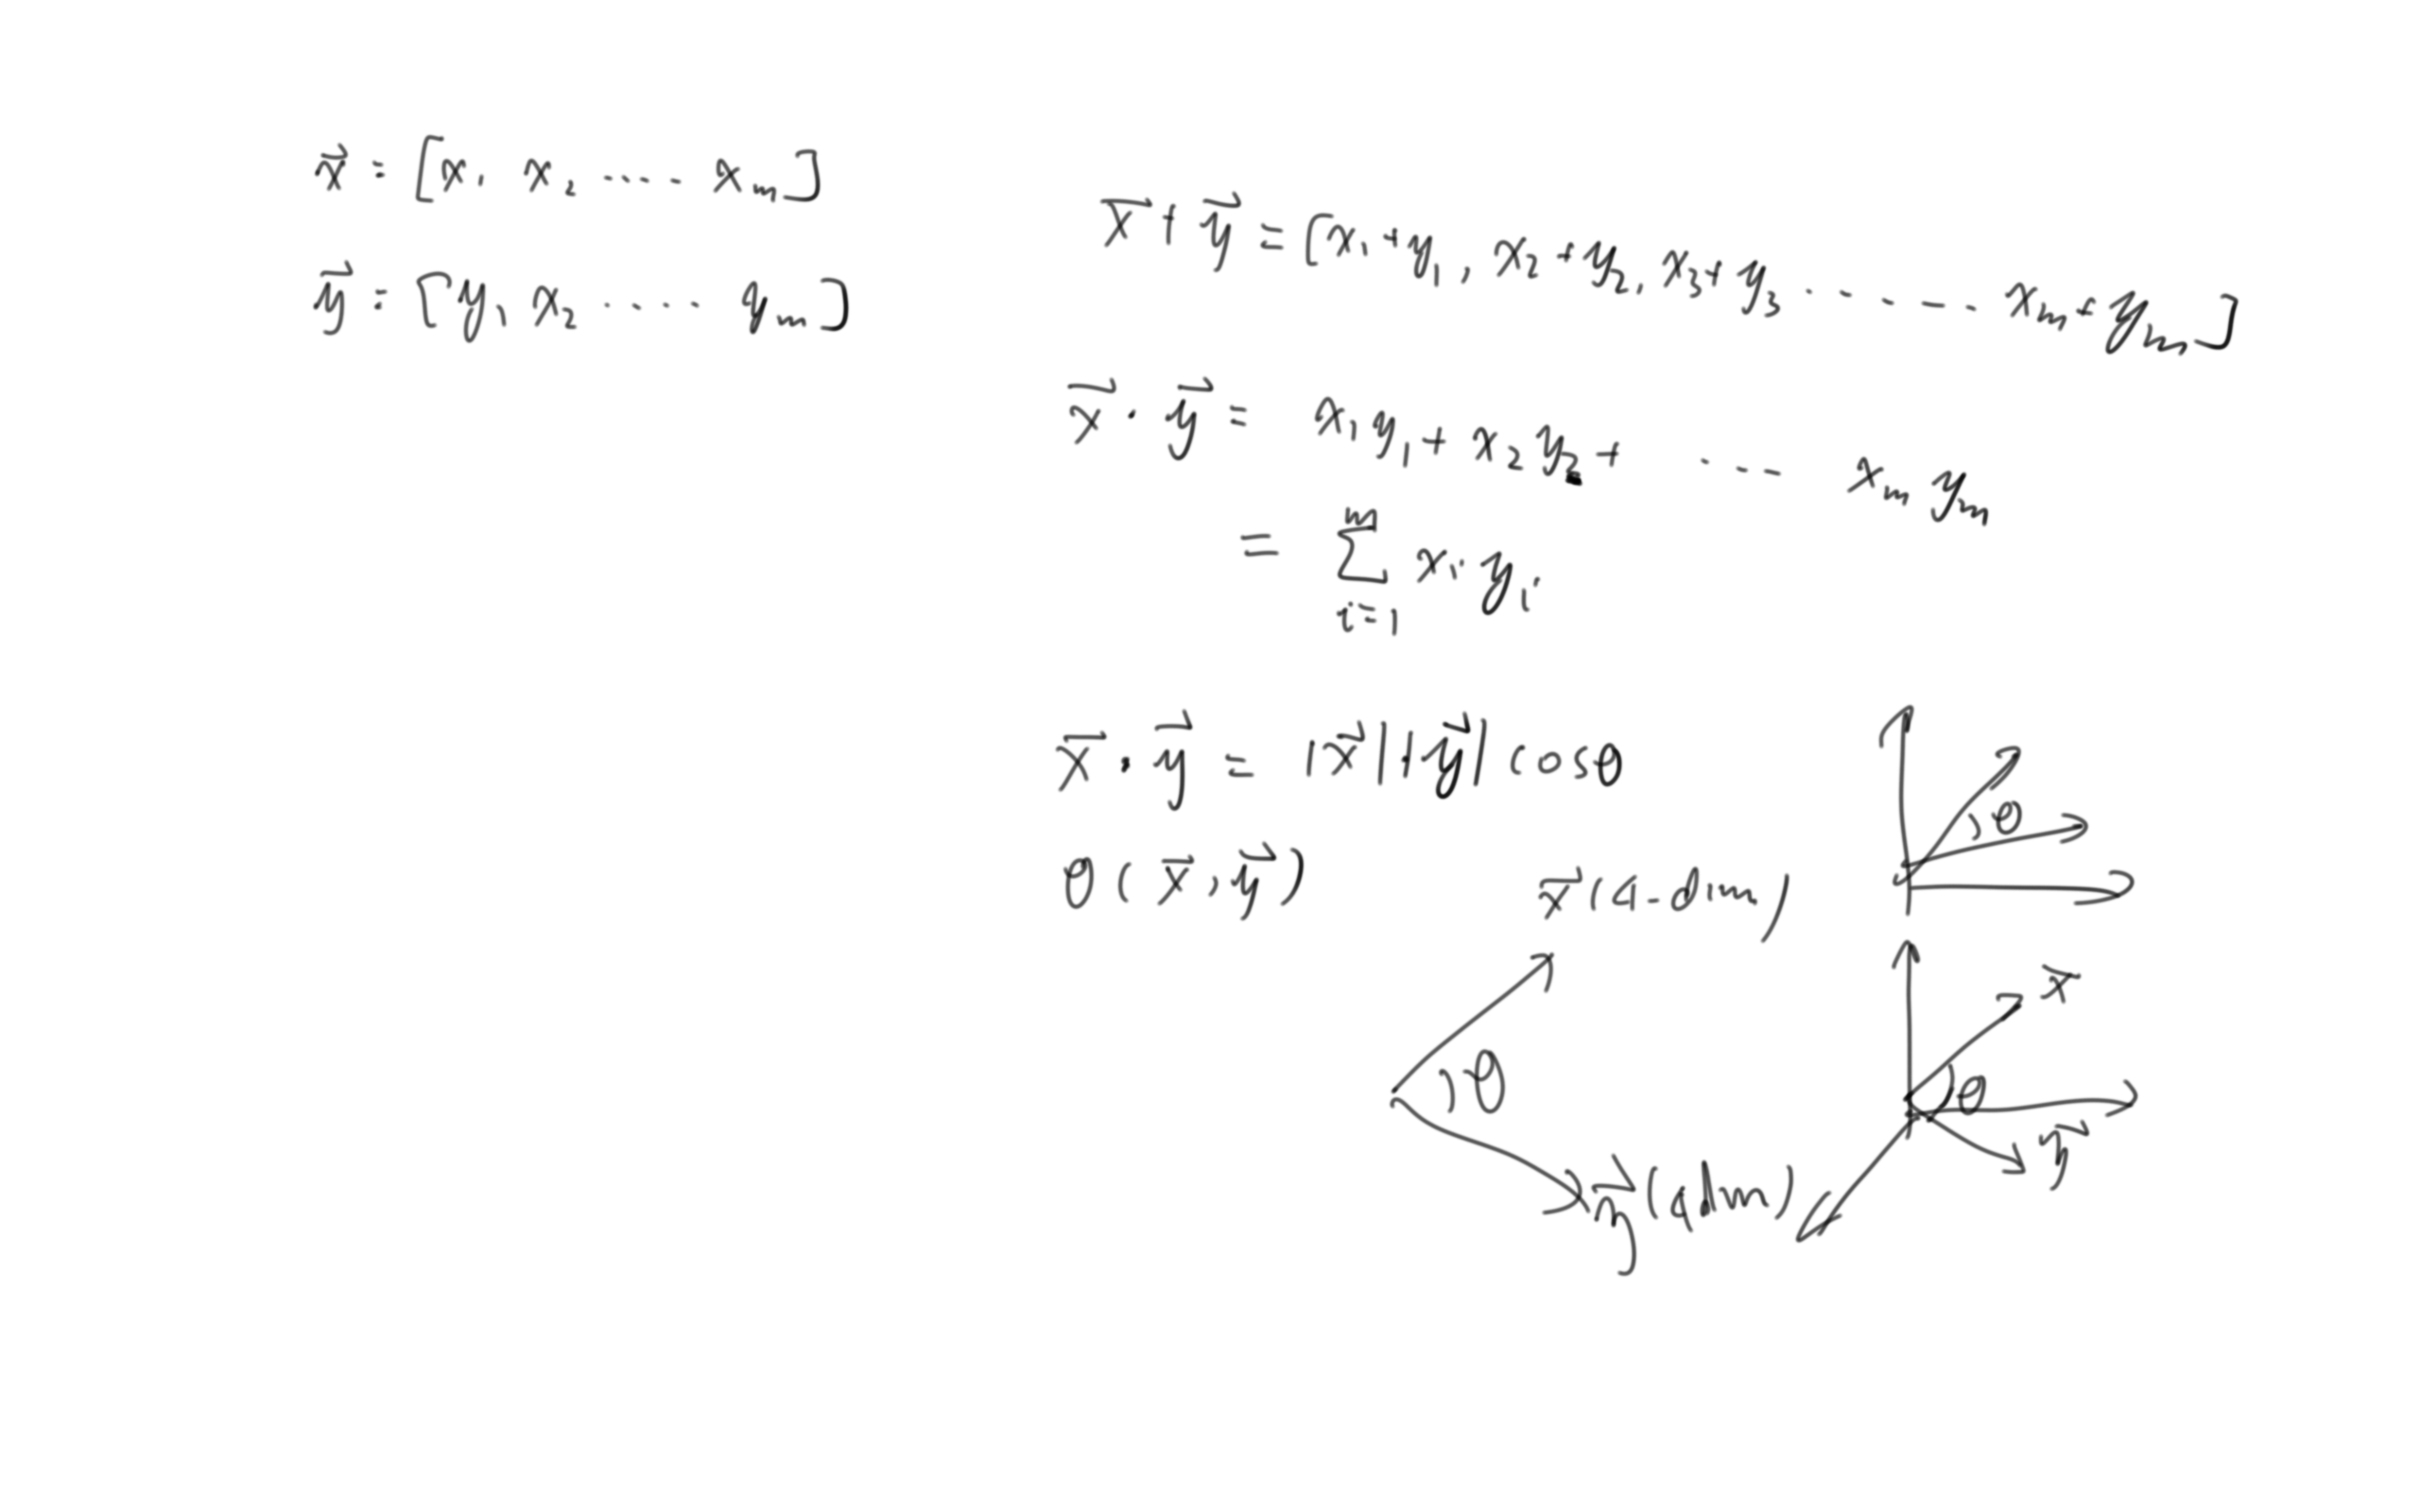 x⃗ = [x₁ x₂ ..... xₘ]
y⃗ = [y₁ x₂ ..... yₘ]
x⃗ + y⃗ = [x₁+y₁, x₂+y₂, x₃+y₃ ....... xₘ+yₘ]
x⃗ · y⃗ = x₁y₁ + x₂y₂ + .... xₘyₘ
m
= Σ xᵢ yᵢ
i=1
x⃗ · y⃗ = |x⃗||y⃗| cosθ
θ
θ(x⃗, y⃗)
x⃗(4-dim)
x⃗
θ
θ
y⃗
y⃗(4dim)